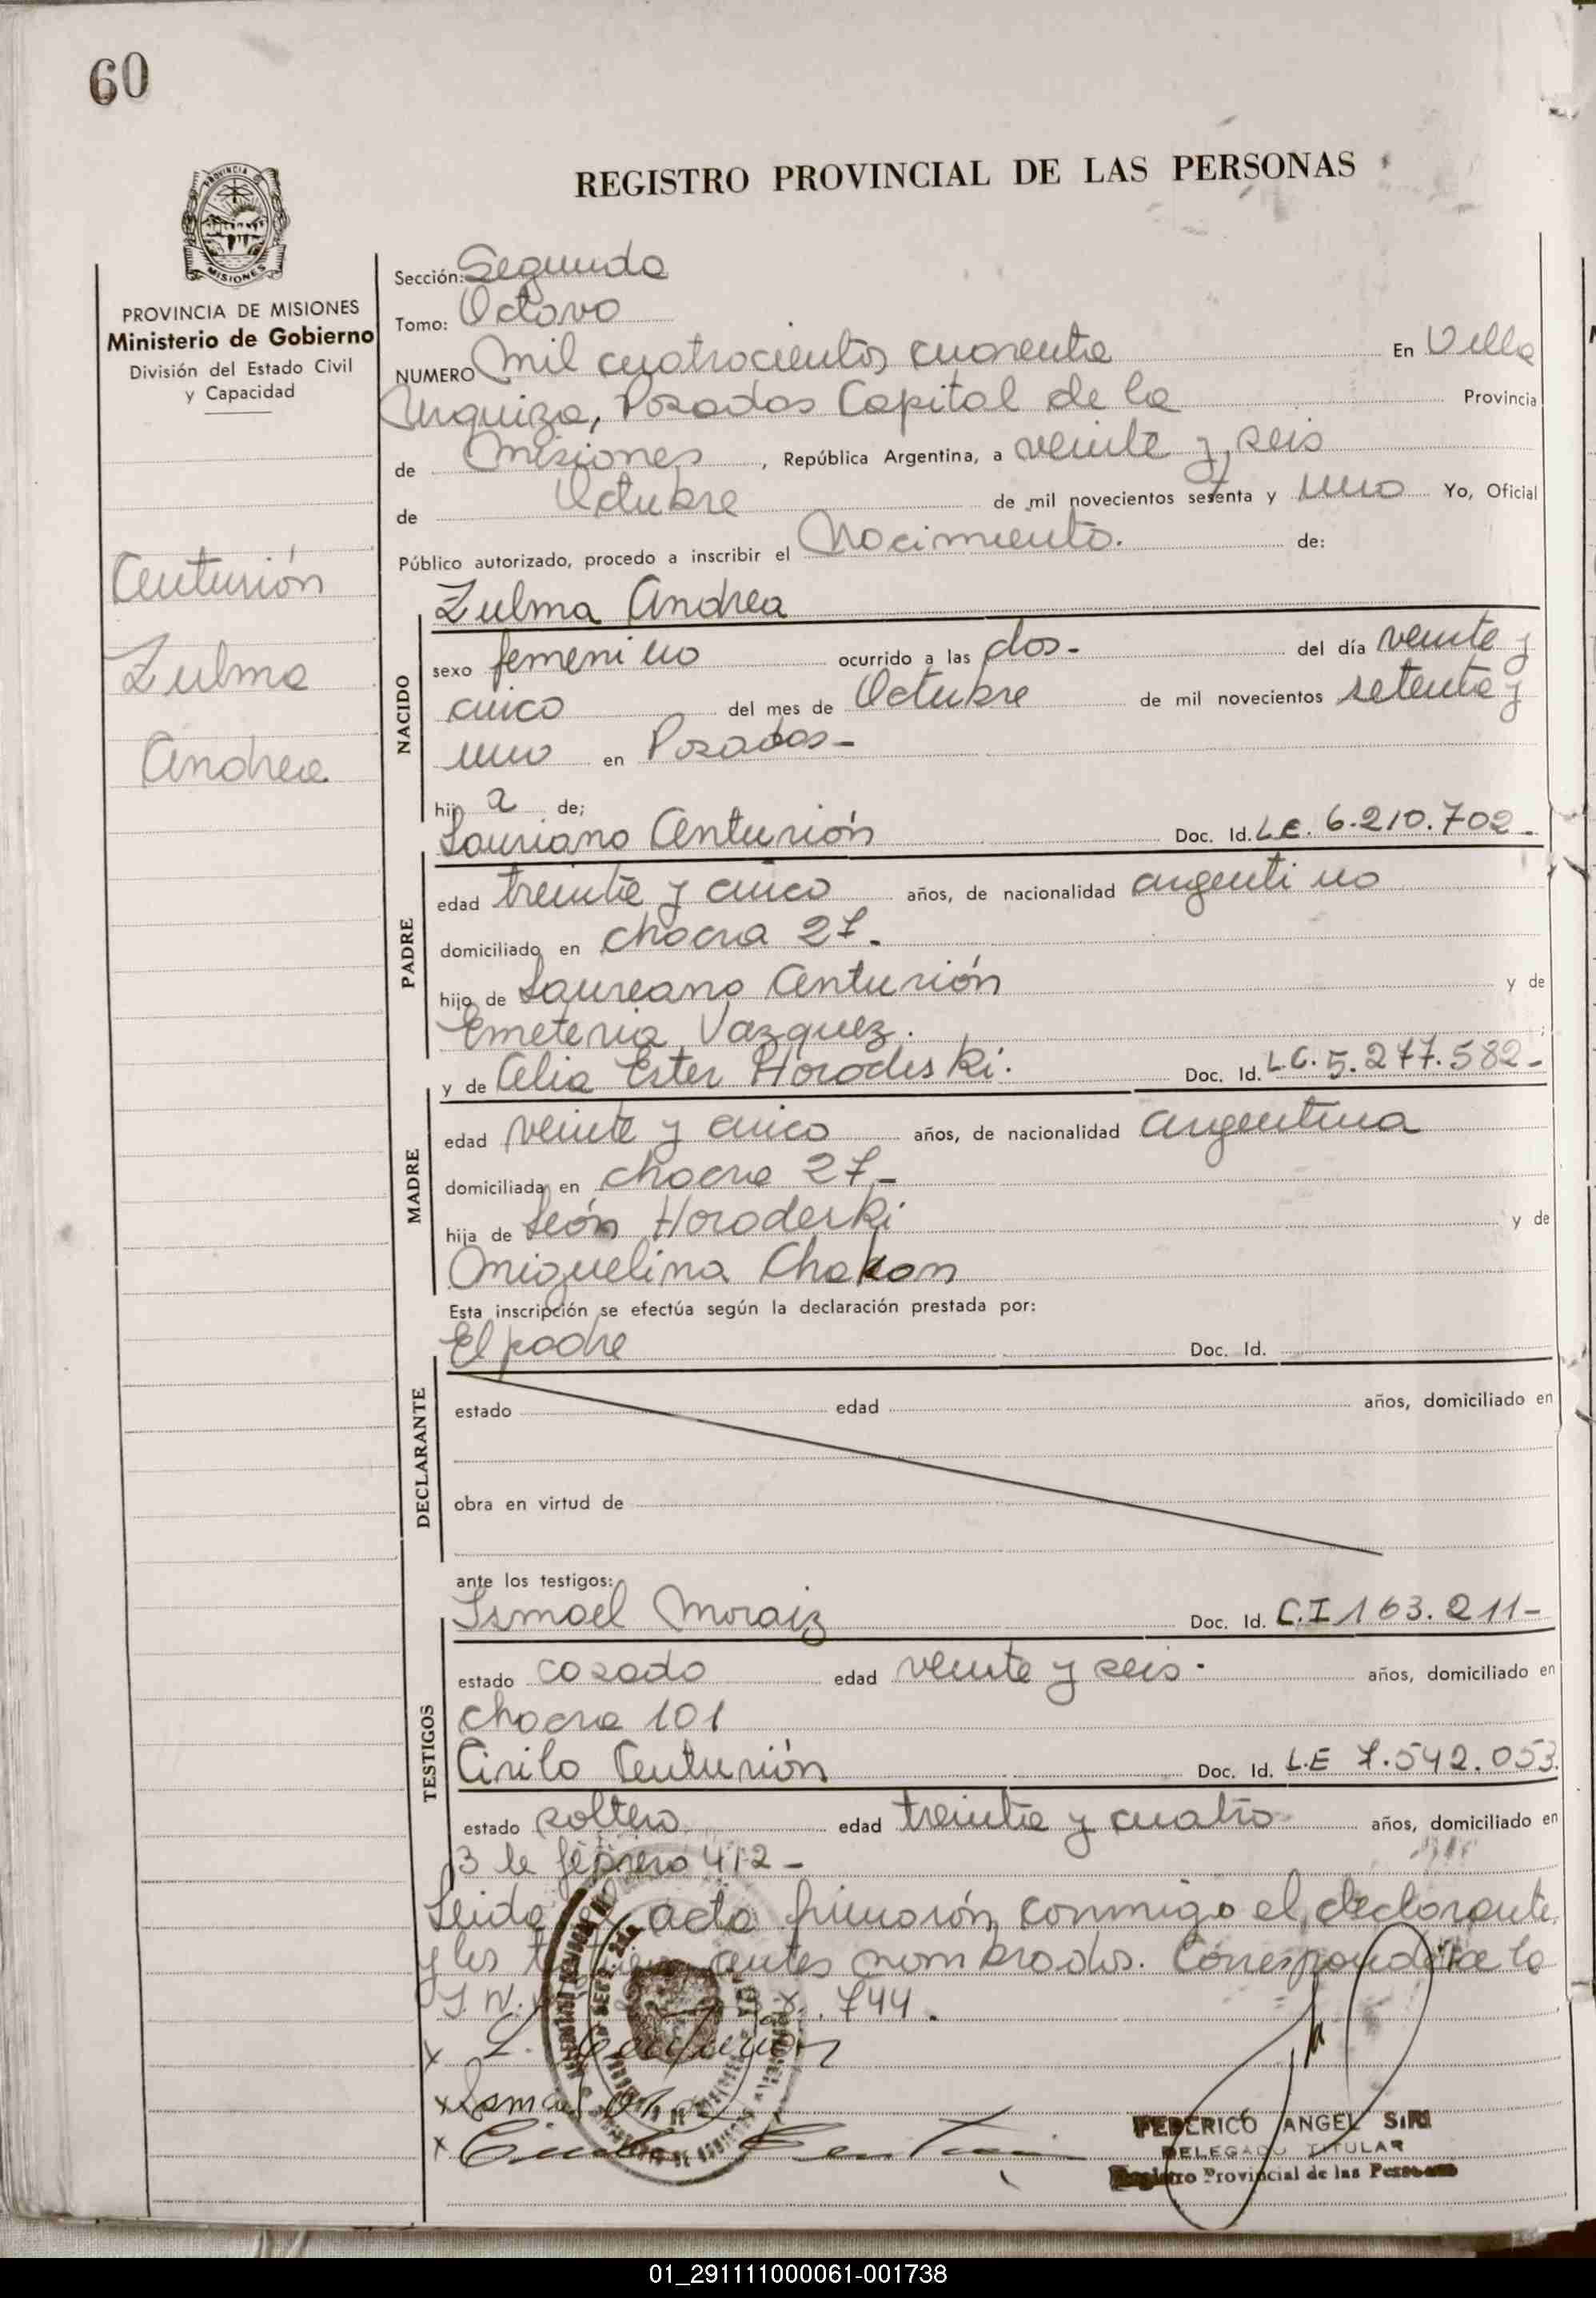 60
REGISTRO PROVINCIAL DE LAS PERSONAS
PROVINCIA DE MISIONES
MISIONES
PROVINCIA DE MISIONES
Ministerio de Gobierno
División del Estado Civil
y Capacidad
Centurión
Zulma
Andrea
Sección: Segunda
Tomo: Octavo
NUMERO Mil cuatrocientos cuarenta En Villa
Urquiza, Posadas Capital de la Provincia
de Misiones, República Argentina, a veinte y seis
de Octubre de mil novecientos setenta y uno Yo, Oficial
Público autorizado, procedo a inscribir el Nacimiento. de:
Zulma Andrea
NACIDO
sexo femenino ocurrido a las dos- del día veinte y
cinco del mes de Octubre de mil novecientos setenta y
uno en Posadas-
hij a de;
Lauriano Centurión Doc. Id. L.E. 6.210.702-
PADRE
edad treinta y cinco años, de nacionalidad argentino
domiciliado en chacra 27.
hijo de Laureano Centurión y de
Emeteria Vazquez. ;
y de Celia Ester Horodeski. Doc. Id. L.C. 5.277.582-
MADRE
edad veinte y cinco años, de nacionalidad argentina
domiciliada en chacra 27-
hija de León Horodeski y de
Miguelina Chakon
Esta inscripción se efectúa según la declaración prestada por:
El padre Doc. Id.
DECLARANTE
estado edad años, domiciliado en
obra en virtud de
ante los testigos:
Ismael Moraiz Doc. Id. C.I 163.211-
TESTIGOS
estado casado edad veinte y seis. años, domiciliado en
chacra 101
Cirilo Centurión Doc. Id. L.E 7.542.053.
estado soltero edad treinta y cuatro años, domiciliado en
3 de febrero 412-
Leida acta firmarón conmigo el declarante
y los antes nombrados. Corresponde a la
744.
x L. Centurion
x Ismael
x Cirilo Centurion
FEDERICO ANGEL SIRI
DELEGADO TITULAR
Registro Provincial de las Personas
01_291111000061-001738